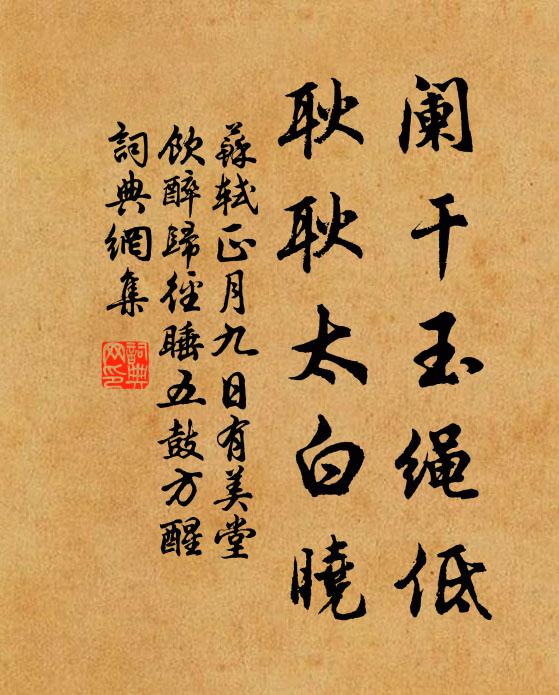 阑干玉绳低
耿耿太白曉
蘇軾正月九日有美堂
飲醉歸徑睡五鼓方醒
詞典網集
詞典
网印